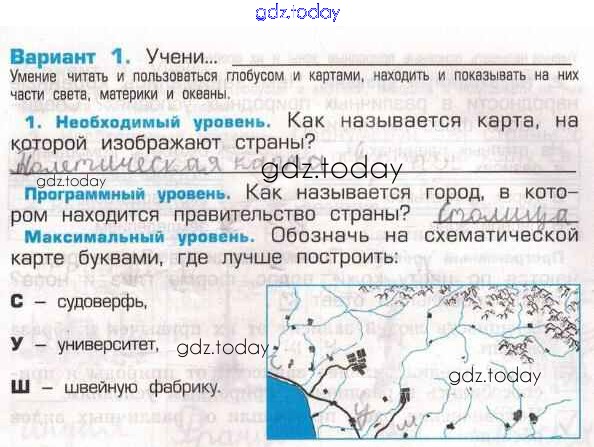 gdz.today
Вариант 1. Учени...
Умение читать и пользоваться глобусом и картами, находить и показывать на них
части света, материки и океаны.
1. Необходимый уровень. Как называется карта, на
которой изображают страны?
Политическая карта
gdz.today
gdz.today
Программный уровень. Как называется город, в кото-
ром находится правительство страны? Столица
Максимальный уровень. Обозначь на схематической
карте буквами, где лучше построить:
С – судоверфь,
У – университет,
Ш – швейную фабрику.
gdz.today
gdz.today
С
У
gdz.today